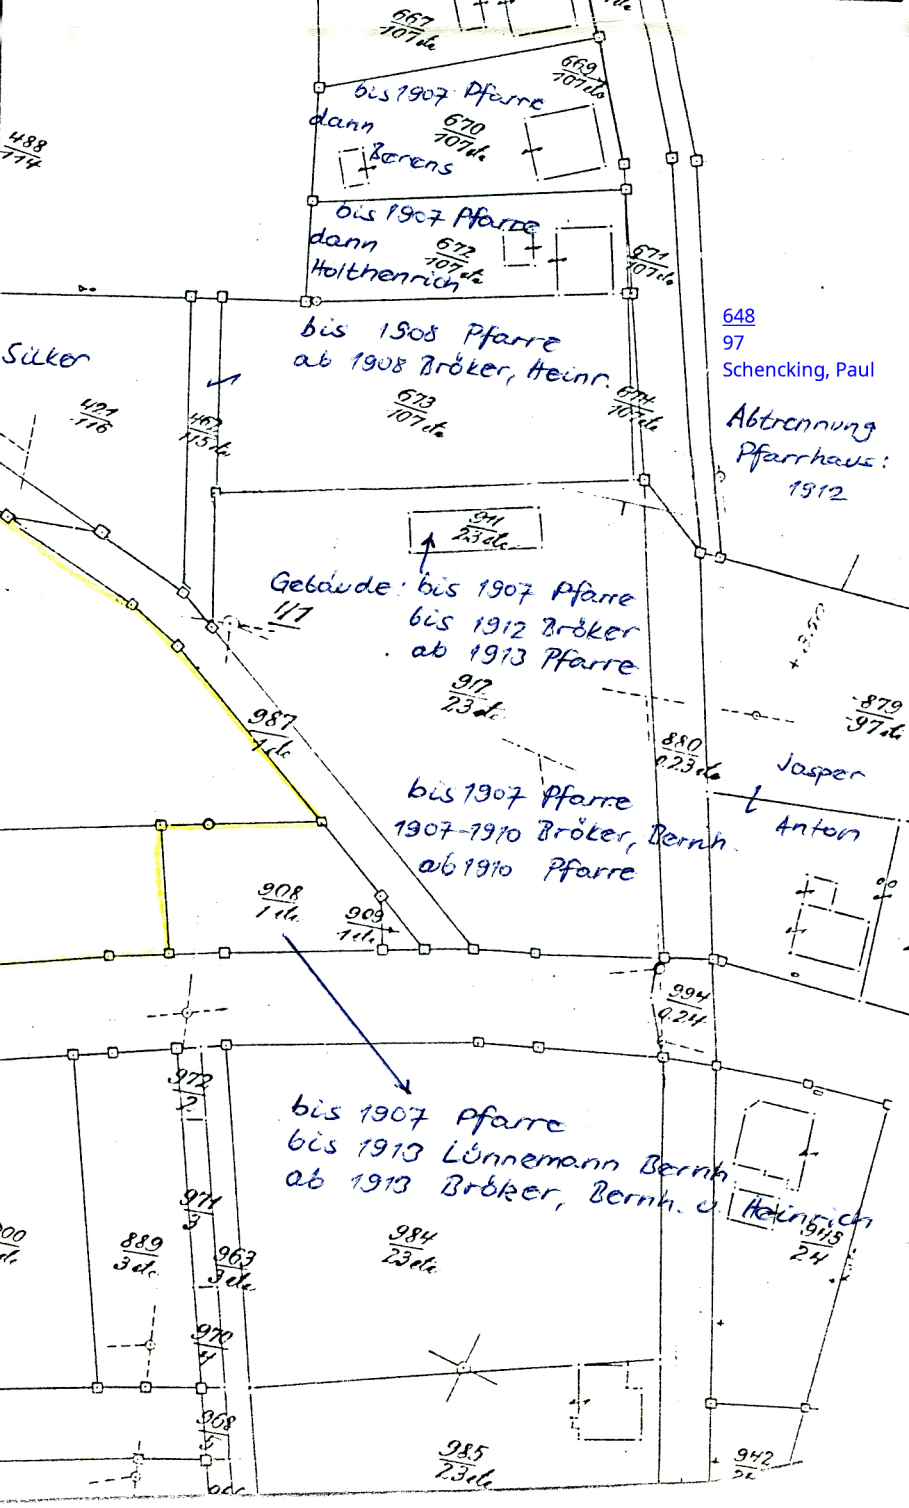 667
107 etc
669
107 etc
bis 1907 Pfarre
dann
670
107 etc
Berens
488
114
bis 1907 Pfarre
dann
672
107 etc
Holthenrich
671
107 etc
648
97
Schencking, Paul
bis 1908 Pfarre
ab 1908 Bröker, Heinr.
Silker
421
116
462
115 etc
673
107 etc
674
107 etc
Abtrennung
Pfarrhaus:
1912
911
23 etc
Gebäude: bis 1907 Pfarre
bis 1912 Bröker
ab 1913 Pfarre
917
23 etc
987
1 etc
880
0.23 etc
879
97 etc
Jasper
Anton
bis 1907 Pfarre
1907-1910 Bröker, Bernh.
ab 1910 Pfarre
908
1 etc
909
1 etc
994
0.24
972
2
bis 1907 Pfarre
bis 1913 Lünnemann Bernh.
ab 1913 Bröker, Bernh. u. Heinrich
971
3
889
3 etc
963
3 etc
984
23 etc
945
24
970
4
968
5
985
23 etc
942